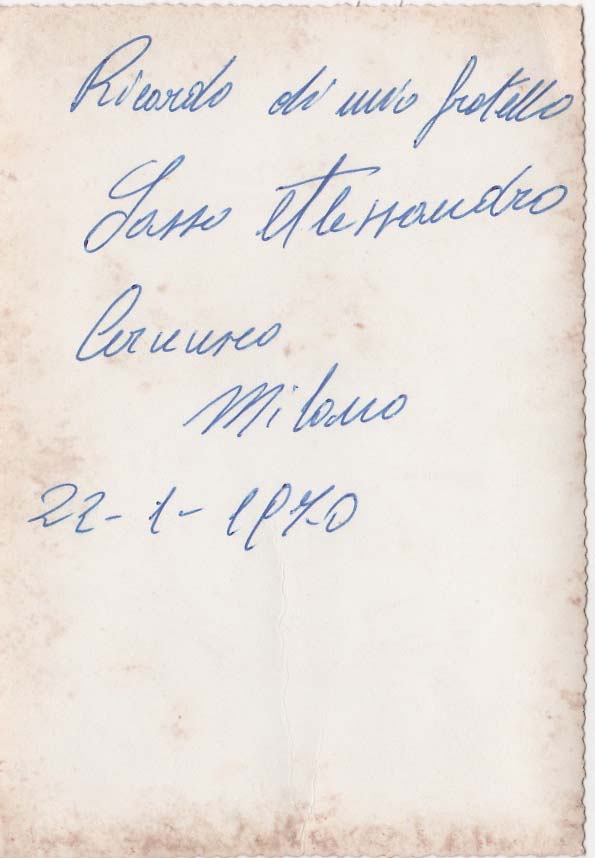 Ricordo di mio fratello
Sasso Alessandro
Cernusco
Milano
22-1-1970